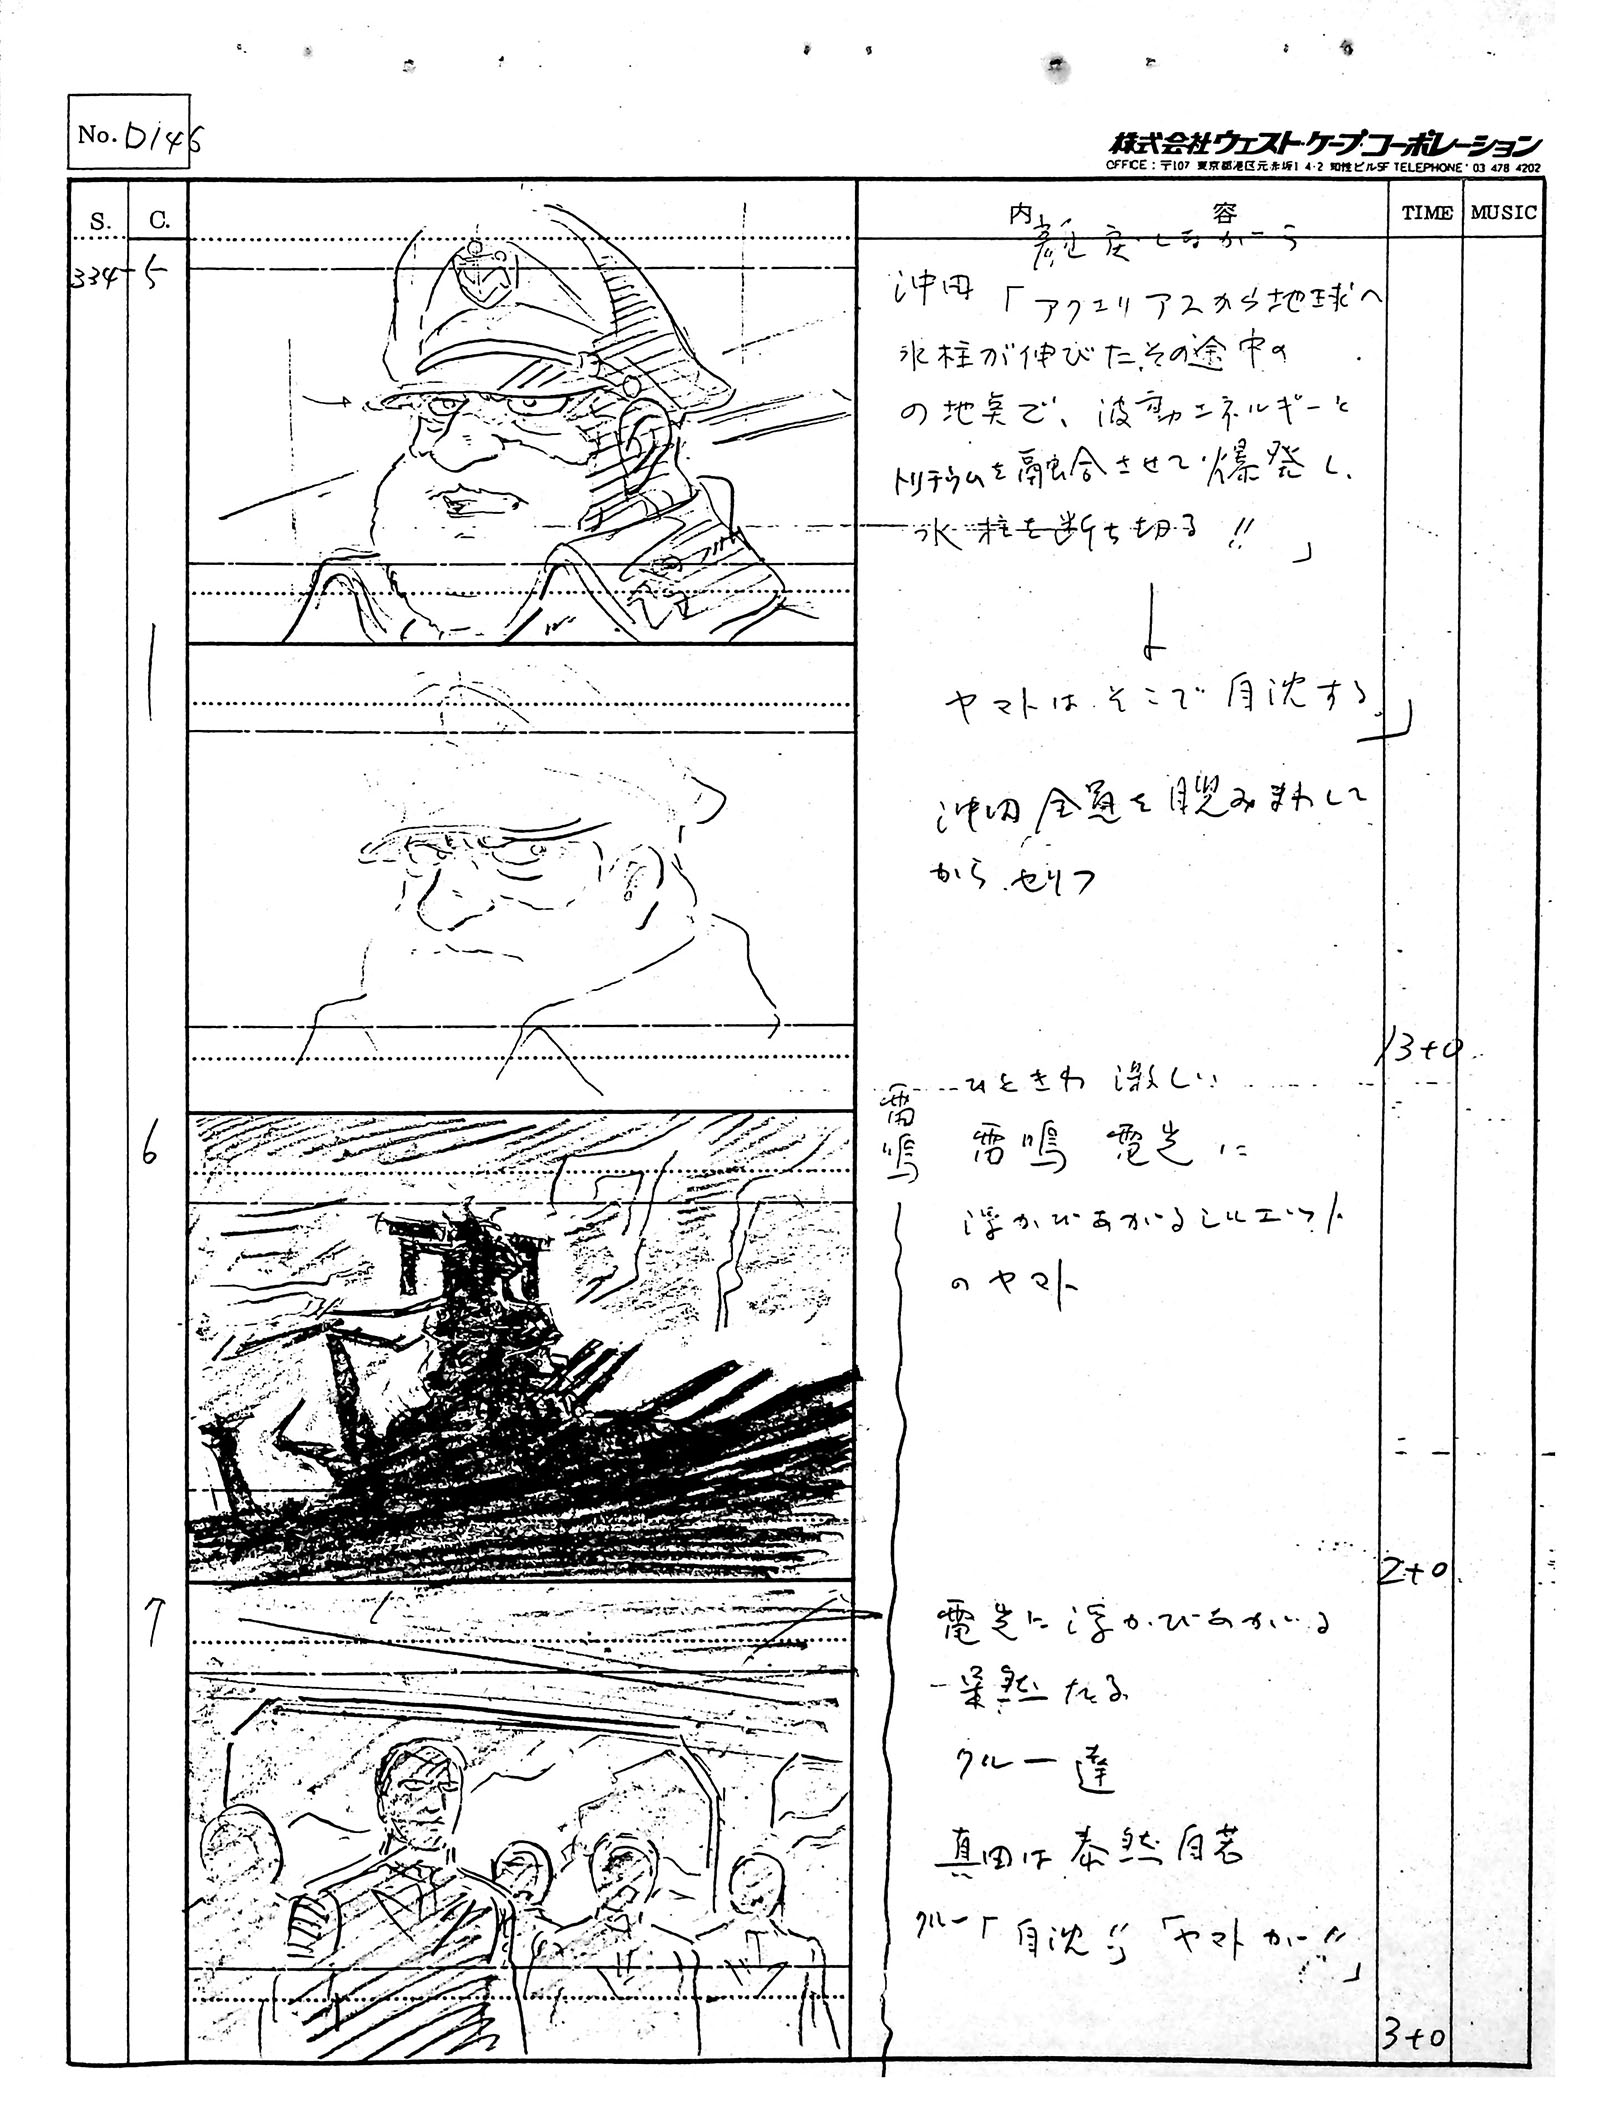 No. D146
株式会社ウェスト・ケープ・コーポレーション
OFFICE：〒107 東京都港区元赤坂1 4-2 知性ビル5F TELEPHONE 03 478 4202
S. C. 内容 TIME MUSIC
334 5
しながら
沖田「アクエリアスから地球へ
水柱が伸びた、その途中の
の地点で、波動エネルギーと
トリチウムを融合させて爆発し、
水柱を断ち切る!!」
ヤマトは、そこで自沈する。」
沖田 全員を睨みまわして
から、セリフ
13+0
6
雷鳴
ひときわ 激しい
雷鳴 電光に
浮かびあがるシルエット
のヤマト
2+0
7
電光に浮かびあがる
クルー達
真田は泰然自若
クルー「自沈!!」「ヤマトがー!!」
3+0